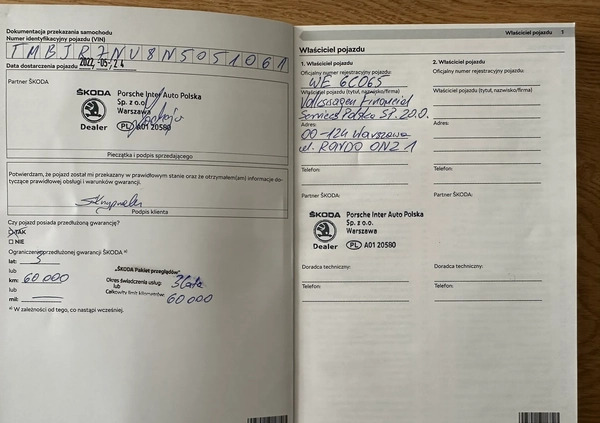 Dokumentacja przekazania samochodu
Numer identyfikacyjny pojazdu (VIN)
TMBJR7NV8N5051061
Data dostarczenia pojazdu 2022 -05- 24
Partner ŠKODA
ŠKODA Porsche Inter Auto Polska
Sp. z o.o.
Warszawa
Dealer PL A01 20580
Pieczątka i podpis sprzedającego
Potwierdzam, że pojazd został mi przekazany w prawidłowym stanie oraz że otrzymałem(am) informacje do-
tyczące prawidłowej obsługi i warunków gwarancji.
Podpis klienta
Czy pojazd posiada przedłużoną gwarancję?
TAK
NIE
Ograniczenie przedłużonej gwarancji ŠKODA a)
lat: 5
lub
km: 60 000
lub
mil:
"ŠKODA Pakiet przeglądów"
Okres świadczenia usług: 3 lata
lub
Całkowity limit kilometrów: 60 000
a) W zależności od tego, co nastąpi wcześniej.
Właściciel pojazdu 1
Właściciel pojazdu
1. Właściciel
Oficjalny numer rejestracyjny pojazdu:
WE 6C065
Właściciel pojazdu (tytuł, nazwisko/firma)
Volkswagen Financial
Services Polska SP. Z O.O.
Adres:
00-124 Warszawa
ul. RONDO ONZ 1
Telefon:
Partner ŠKODA:
ŠKODA Porsche Inter Auto Polska
Sp. z o.o.
Warszawa
Dealer PL A01 20580
Doradca techniczny:
Telefon:
2. Właściciel
Oficjalny numer rejestracyjny pojazdu:
Właściciel pojazdu (tytuł, nazwisko/firma)
Adres:
Telefon:
Partner ŠKODA:
Doradca techniczny:
Telefon: